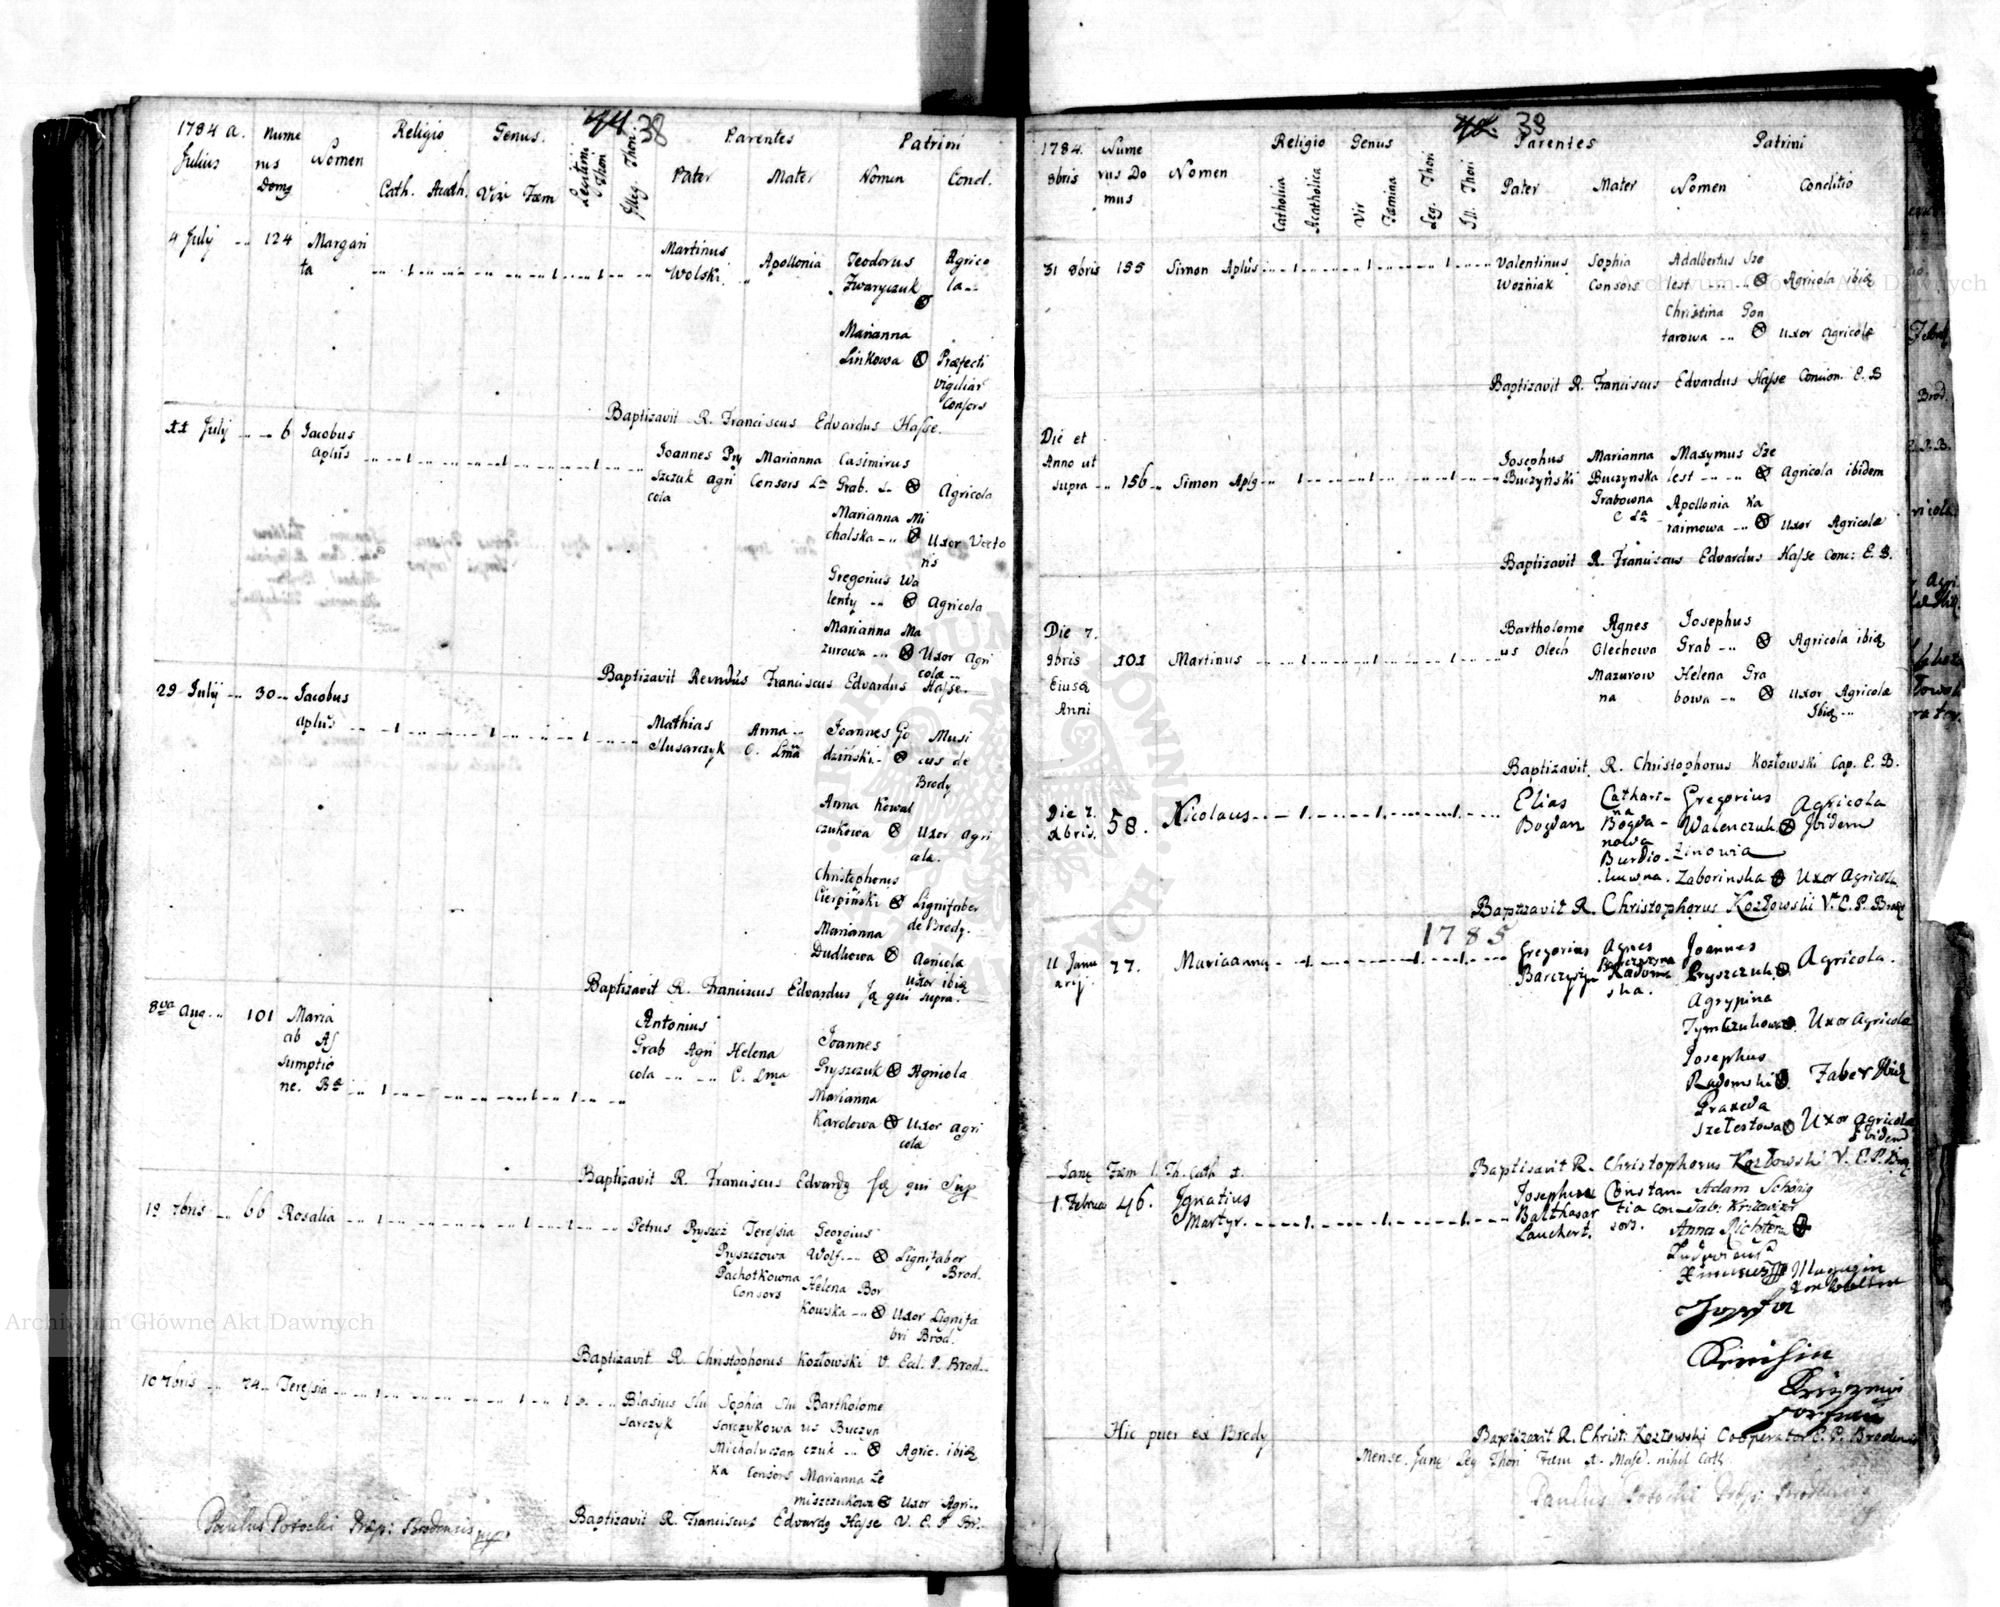 44 38
1784 a.
Julius
Nume
rus
Domus
Nomen
Religio
Cath. Acath.
Genus.
Vir Fæm
Legitimi Thori
Illeg. Thori
Parentes
Pater Mater
Patrini
Nomen Cond.
4 July 124 Margari
ta
Martinus
Wolski
Apollonia
Teodorus
Iwaryczuk
Agrico
la
Marianna
Linkowa Præfecti
vigiliar
Consors
Baptizavit R. Franciscus Edvardus Hasse.
11 July 6 Jacobus
aplus
Joannes Pry
szczuk agri
cola
Marianna
Consors L
Casimirus
Grab. Agricola
Marianna Mi
chalska Uxor Vecto
ris
Gregorius Wa
lenty Agricola
Marianna Ma
zurowa Uxor Agri
colæ
Baptizavit Rerndus Franciscus Edvardus Hasse
29 July 30 Jacobus
aplus
Mathias
Slusarczyk
Anna
C. Lma
Joannes Go
dziński
Musi
cus de
Brody
Anna Kowal
czukowa Uxor Agri
cola.
Christophorus
Cierpiński Lignifaber
de Brody.
Marianna
Dudkowa Agricolæ
Uxor ibiq
Baptizavit R. Franciscus Edvardus qui supra.
8va Aug. 101 Maria
ab As
sumptio
ne. B
Antonius
Grab Agri
cola
Helena
C. Lma
Joannes
Pryszczuk Agricola
Marianna
Karolowa Uxor agri
colæ
Baptizavit R. Franciscus Edvardq qui Sup
19 7bris 66 Rosalia
Petrus Pryszcz
Teressia
Pryszczowa
Pachotkowna
Consors
Georgius
Wolf Lignifaber
Brod.
Helena Bor
kowska Uxor Lignifa
bri Brod.
Baptizavit R. Christophorus Kozłowski V. Ecl. P. Brod
10 7bris 74 Teressia
Blasius Slu
sarczyk
Sophia Slu
sarczykowa
Michalvczan
ka Consors
Bartholome
us Buczyn
czuk Agric. ibiq
Marianna Le
miszczukowa Uxor Agri
Baptizavit R. Franciscus Edvardq Hasse V. E. P. Br.
Paulus Potocki Præp: Brodensis
39
1784.
8bris
Nume
rus Do
mus
Nomen
Religio
Catholica
Acatholica
Genus
Vir
Fæmina
Leg. Thori
Ill. Thori
Parentes
Pater Mater
Patrini
Nomen Conditio
31 8bris 155 Simon Aplus
Valentinus
Wozniak
Sophia
Consors
Adalbertus Sze
lest Agricola ibiq
Christina Gon
tarowa Uxor agricolæ
Baptizavit R. Franciscus Edvardus Hasse Concion. E. B
Die et
Anno ut
supra 156 Simon Aplq
Josephus
Buczyński
Marianna
Buczynska
Grabowna
C La
Maxymus Sze
lest Agricola ibidem
Apollonia Ka
raimowa Uxor Agricolæ
Baptizavit R. Franciscus Edvardus Hasse Conc: E. B.
Die 7.
9bris
Eiusq
Anni
101 Martinus
Bartholome
us Olech
Agnes
Olechowa
Mazurow
na
Josephus
Grab Agricola ibiq
Helena Gra
bowa Uxor Agricolæ
Ibiq
Baptizavit R. Christophorus Kozłowski Cap. E. B.
Die 7.
Xbris. 58. Nicolaus
Elias
Bogdan
Cathari
na
Bogda
nowa
Gregorius
Walenczuk
Agricola
Ibidem
Zinowia
Zaborinska Uxor Agricola
Baptizavit R. Christophorus Kozłowski V. E. P. Brod
1785
11 Janu
arij. 77. Marianna
Gregorius
Barczysz
Agnes
Radoms
ka.
Joannes
Pryszczuk Agricola.
Agrypina
Tymczukowa Uxor Agricolæ
Josephus
Radomski Faber Ibiq
Praxeda
Szelestowa Uxor Agricolæ
Ibidem
Baptisavit R. Christophorus Kozłowski V. E. P. Brod
Janq Fæm 1. Th. Cath 1.
1. Februar 46. Ignatius
Martyr.
Josephus
Balthasar
Lauchert.
Constan
tia Con
sors.
Adam Schönig
Anna Richterin
Josefa
Hic puer ex Brody
Baptizavit R. Christ: Kozłowski Cooperator E. P. Brodensis
Mense. Janq Leg Thori Fæm 1. Masc. nihil Cath
Paulus Potocki Præp: Brodensis
Archiwum Główne Akt Dawnych
Archiwum Główne Akt Dawnych
ARCHIWUM GŁÓWNE AKT DAWNYCH